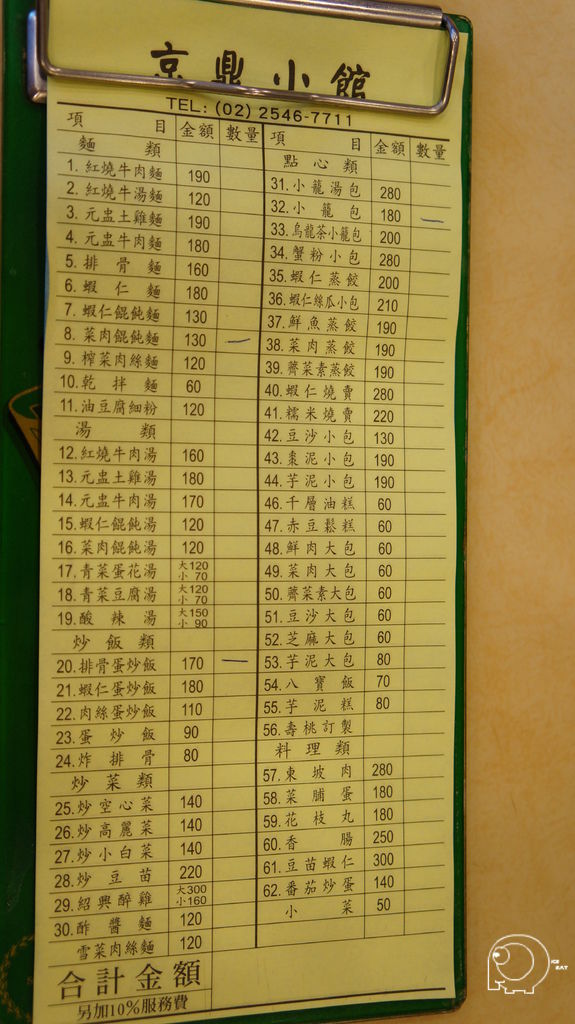 京鼎小館
TEL: (02) 2546-7711
項 目 金額 數量
麵 類
1. 紅燒牛肉麵 190
2. 紅燒牛湯麵 120
3. 元盅土雞麵 190
4. 元盅牛肉麵 180
5. 排骨麵 160
6. 蝦仁麵 180
7. 蝦仁餛飩麵 130
8. 菜肉餛飩麵 130 一
9. 榨菜肉絲麵 120
10. 乾拌麵 60
11. 油豆腐細粉 120
湯 類
12. 紅燒牛肉湯 160
13. 元盅土雞湯 180
14. 元盅牛肉湯 170
15. 蝦仁餛飩湯 120
16. 菜肉餛飩湯 120
17. 青菜蛋花湯 大120 小 70
18. 青菜豆腐湯 大120 小 70
19. 酸辣湯 大150 小 90
炒飯類
20. 排骨蛋炒飯 170 一
21. 蝦仁蛋炒飯 180
22. 肉絲蛋炒飯 110
23. 蛋炒飯 90
24. 炸排骨 80
炒菜類
25. 炒空心菜 140
26. 炒高麗菜 140
27. 炒小白菜 140
28. 炒豆苗 220
29. 紹興醉雞 大300 小160
30. 酢醬麵 120
雪菜肉絲麵 120
合計金額
另加10%服務費
項 目 金額 數量
點心類
31. 小籠湯包 280
32. 小籠包 180 一
33. 烏龍茶小籠包 200
34. 蟹粉小包 280
35. 蝦仁蒸餃 200
36. 蝦仁絲瓜小包 210
37. 鮮魚蒸餃 190
38. 菜肉蒸餃 190
39. 薺菜素蒸餃 190
40. 蝦仁燒賣 280
41. 糯米燒賣 220
42. 豆沙小包 130
43. 棗泥小包 190
44. 芋泥小包 190
46. 千層油糕 60
47. 赤豆鬆糕 60
48. 鮮肉大包 60
49. 菜肉大包 60
50. 薺菜素大包 60
51. 豆沙大包 60
52. 芝麻大包 60
53. 芋泥大包 80
54. 八寶飯 70
55. 芋泥糕 80
56. 壽桃訂製
料理類
57. 東坡肉 280
58. 菜脯蛋 180
59. 花枝丸 180
60. 香腸 250
61. 豆苗蝦仁 300
62. 番茄炒蛋 140
小菜 50
ICE
EAT